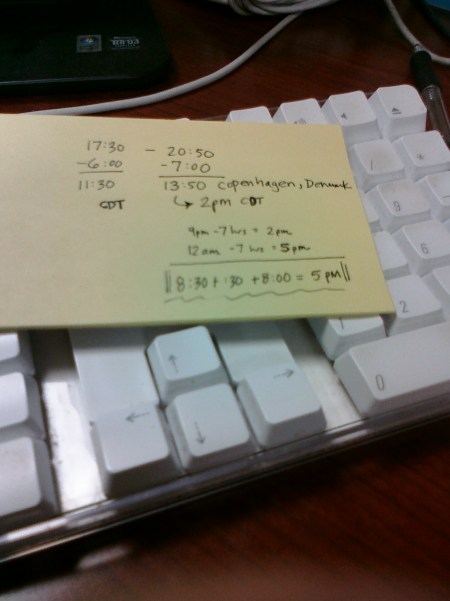 17:30 - 20:50
-6:00 -7:00
11:30 13:50 Copenhagen, Denmark
CDT ↳ 2pm CDT
9pm -7 hrs = 2pm
12am -7 hrs = 5pm
8:30 + :30 + 8:00 = 5pm
/
*
9
6
1
2
0
↑
←
↓
→